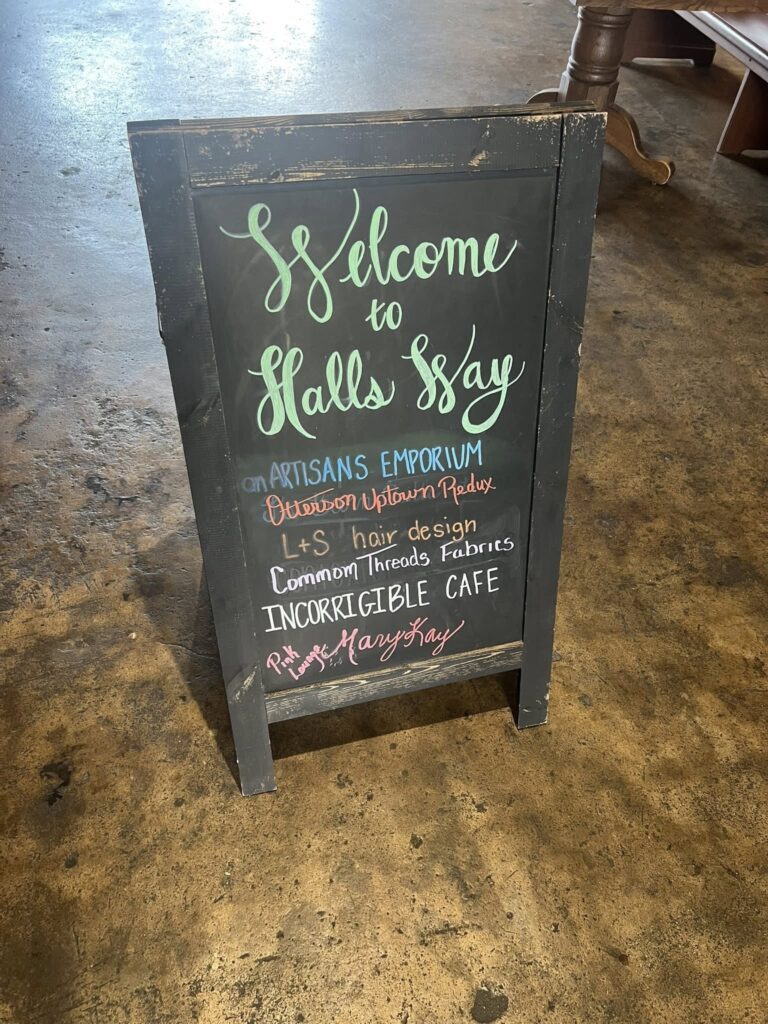 Welcome
to
Halls Way
an ARTISANS EMPORIUM
Otterson Uptown Redux
L+S hair design
Commom Threads Fabrics
INCORRIGIBLE CAFE
Pink Lounge Mary Kay